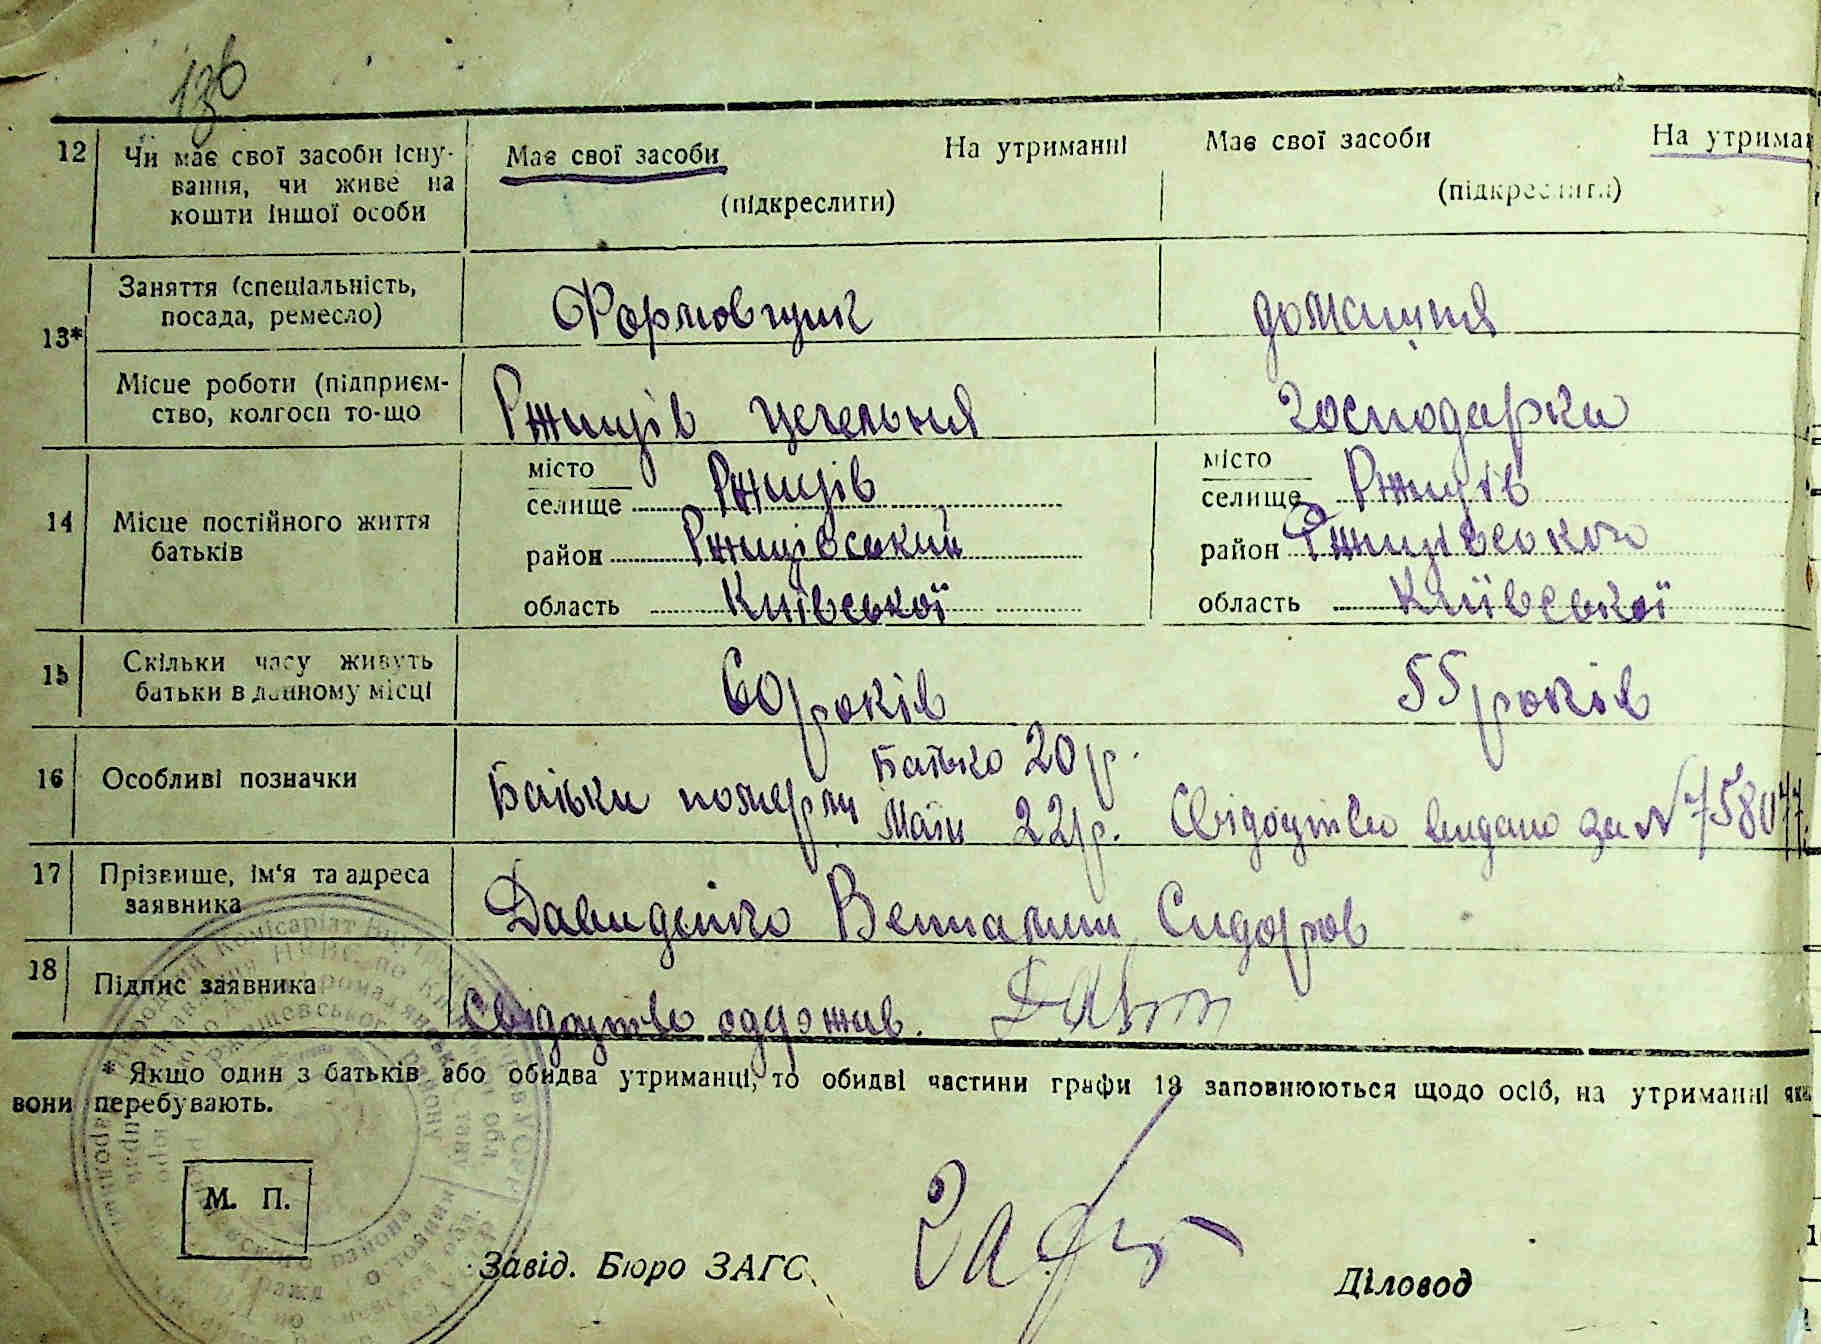 136
12 Чи має свої засоби існу- Має свої засоби На утриманні Має свої засоби На утрима
вання, чи живе на
кошти іншої особи (підкреслити) (підкреслити)
13* Заняття (спеціальність,
посада, ремесло) Формовщик домашня
Місце роботи (підприєм-
ство, колгосп то-що Ржищів цегельня господарка
14 Місце постійного життя
батьків
місто Ржищів місто Ржищів
селище селище
район Ржищівський район Ржищівського
область Київської область Київської
15 Скільки часу живуть
батьки в данному місці 60 років 55 років
16 Особливі позначки Батьки померли Батько 20 р.
Мати 22 р. Свідоцтво видано за №
17 Прізвище, ім'я та адреса
заявника Давиденко Вениамин Сидоров
18 Підпис заявника Свідоцтво одержав.
* Якщо один з батьків або обидва утриманці, то обидві частини графи 13 заповнюються щодо осіб, на утриманні яких
вони перебувають.
М. П.
Завід. Бюро ЗАГС Діловод